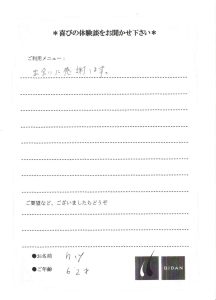 ＊喜びの体験談をお聞かせ下さい＊
ご利用メニュー：
出会いに感謝します。
ご要望など、ございましたらどうぞ
●お名前
●ご年齢 62才
BIDAN